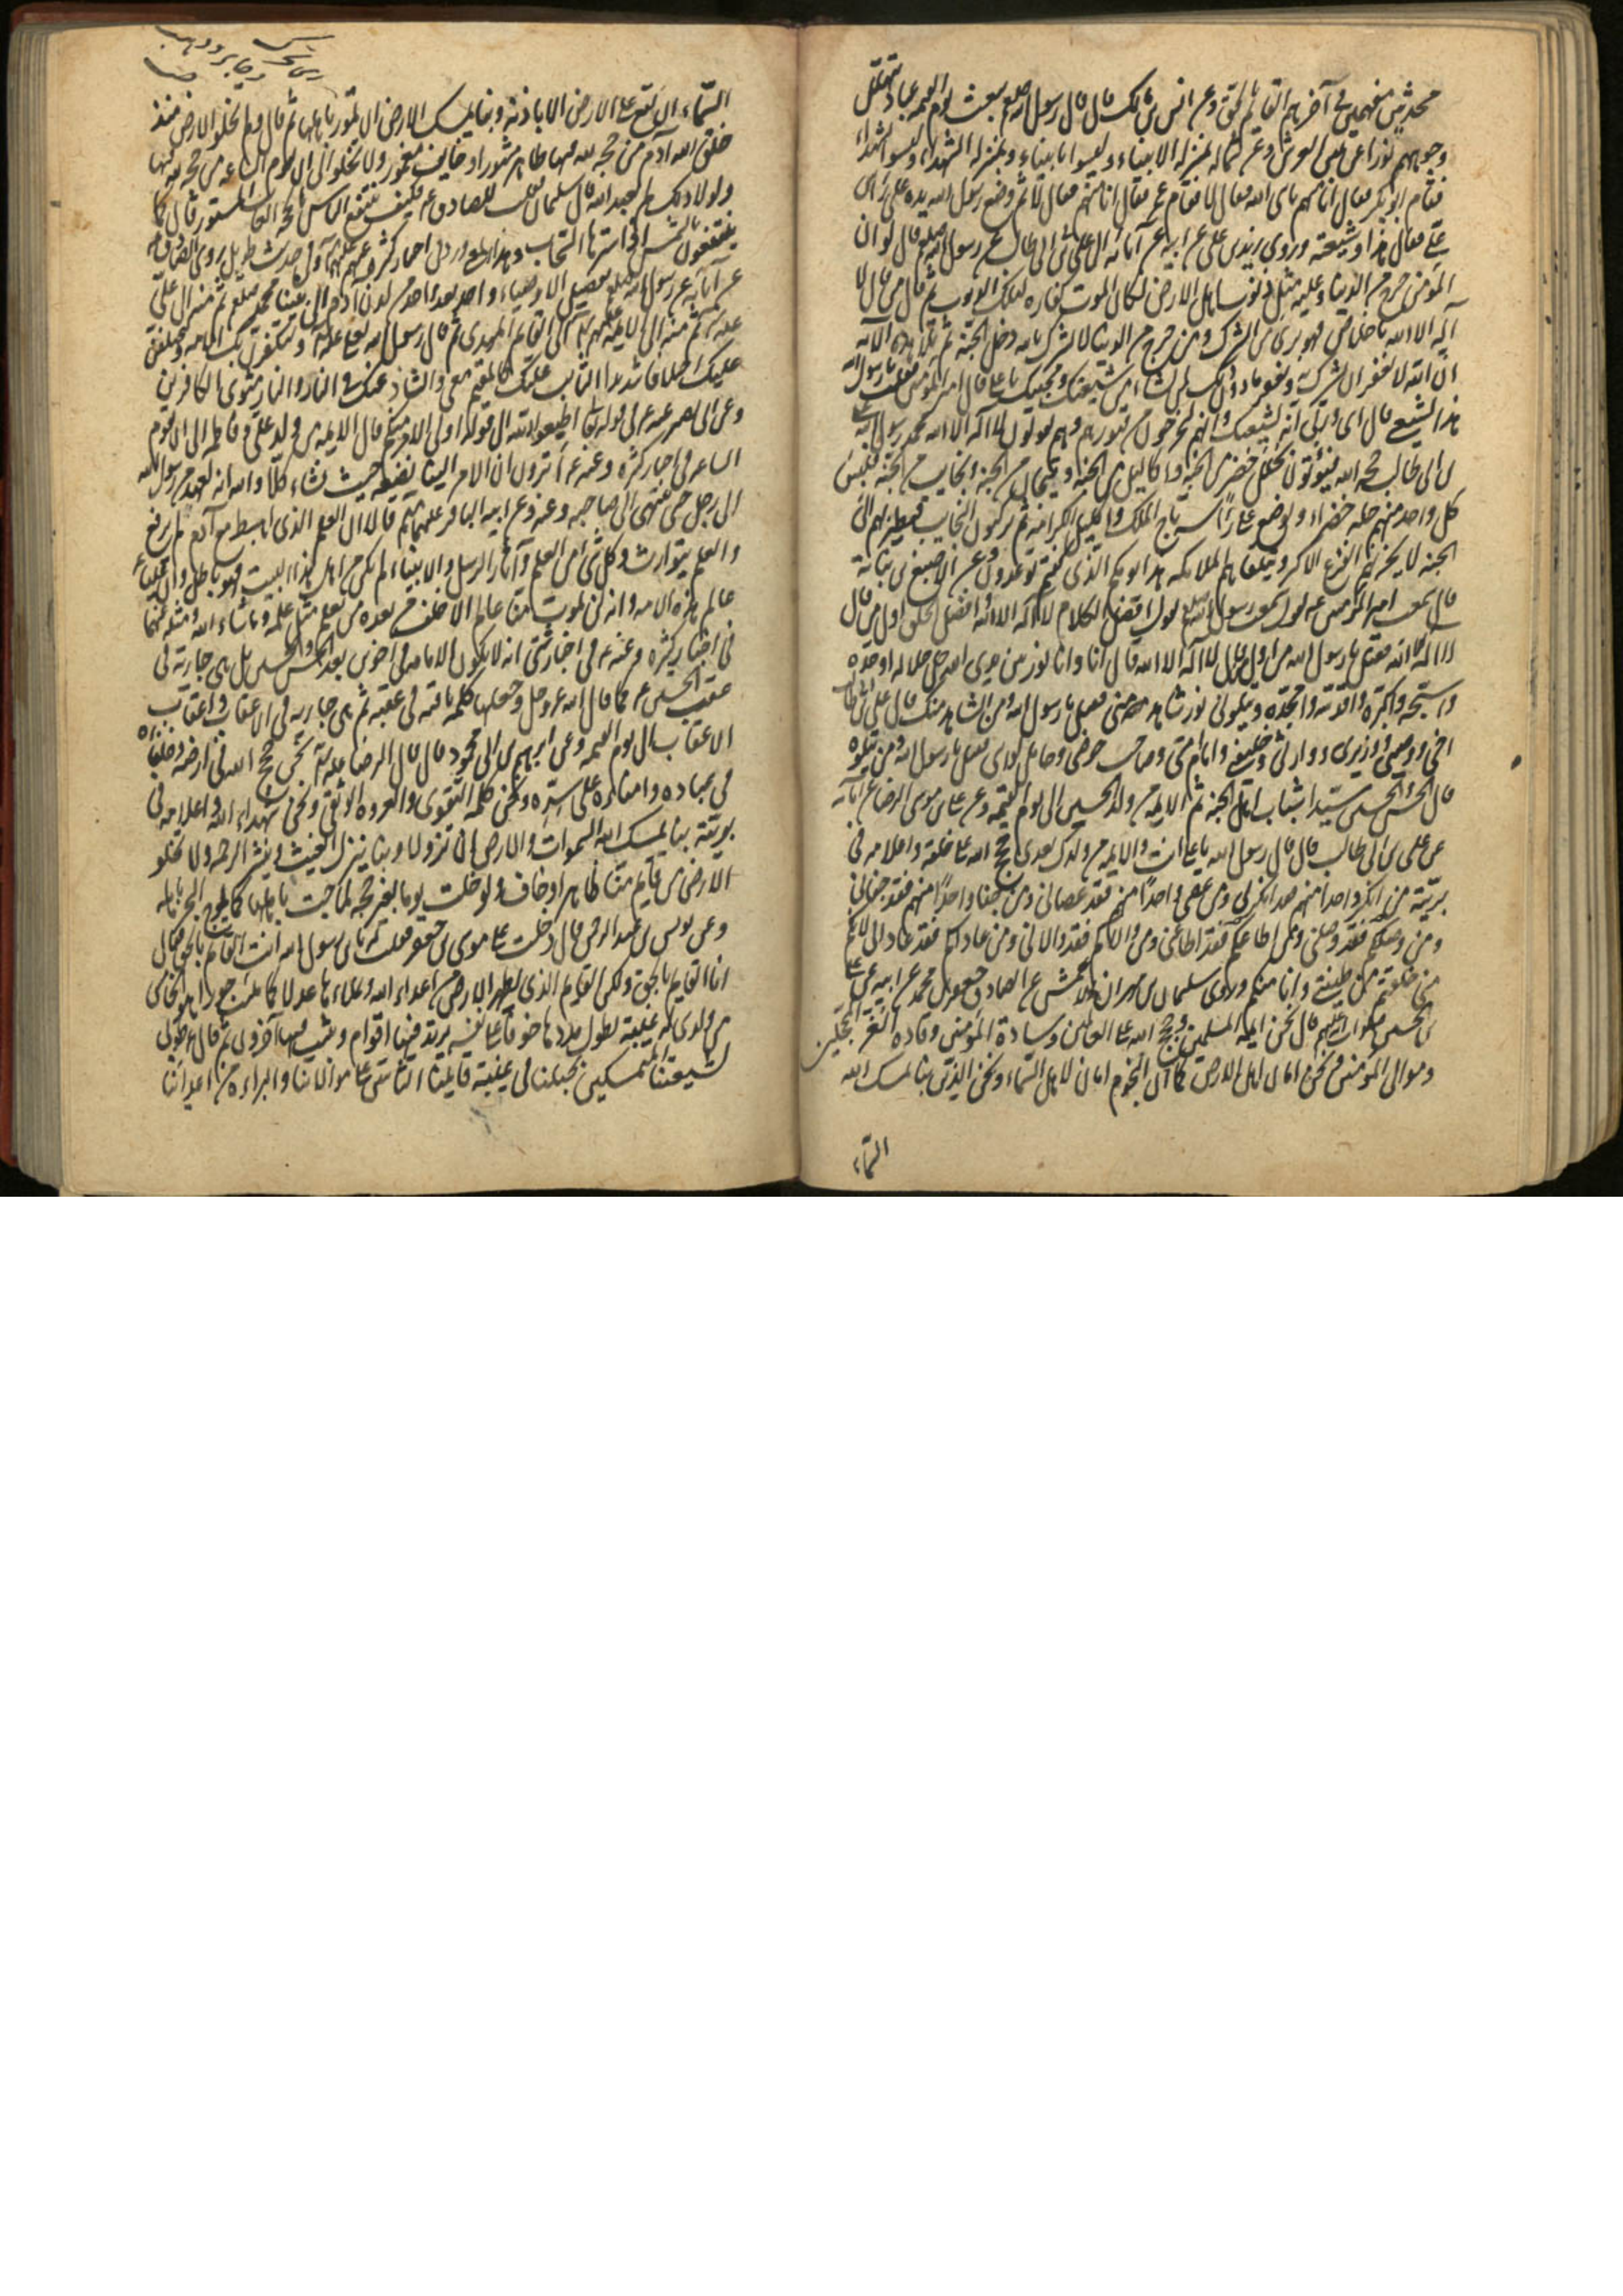 محدثين مفهمين في آخرهم القائم بحق وعن انس بن مالك قال قال رسول الله صلعم يبعث يوم القيمه عباد تهلل
وجوههم نورا عن يمين العرش وعن شماله بمنزله الانبياء وليسوا بانبياء وبمنزله الشهداء وليسوا شهداء
فقام ابو بكر فقال انا منهم يا نبي الله فقال لا فقام عمر فقال انا منهم فقال لا ثم وضع رسول الله يده على راس
علي فقال هذا وشيعته وروى زيد بن علي عن ابيه عن آبائه ان علي بن ابي طالب عن رسول الله صلعم قال لو ان
المؤمن خرج من الدنيا وعليه مثل ذنوب اهل الارض لكان الموت كفاره لتلك الذنوب ثم قال من قال لا
آله الا الله باخلاص فهو بري من الشرك ومن خرج من الدنيا لا يشرك بالله دخل الجنة ثم تلا هذه الآية
ان الله لا يغفر ان يشرك به ويغفر ما دون ذلك لمن يشاء من شيعتك ومحبيك يا علي قال امير المؤمنين فقلت يا رسول الله
هذا لشيعتي قال اى وربي انه لشيعتك وانهم ليخرجون من قبورهم وهم يقولون لا آله الا الله محمد رسول الله علي
بن ابي طالب حجه الله فيؤتون بحلل خضر من الجنة واكاليل من الجنة وتيجان من الجنة ونجائب من الجنة فيلبس
كل واحد منهم حله خضراء ويوضع على راسه تاج الملك واكليل الكرامه ثم يركبون النجايب فتطير بهم الى
الجنة لا يحزنهم الفزع الاكبر وتتلقاهم الملائكه هذا يومكم الذى كنتم توعدون وعن الاصبغ بن نباتة
قال سمعت امير المؤمنين ع يقول سمعت رسول الله صلعم يقول افضل الكلام لا آله الا الله وافضل الخلق اول من قال
لا اله الا الله فقيل يا رسول الله من اول من قال لا اله الا الله قال انا وانا نور بين يدى الله جل جلاله اوحده
واسبحه واكبره واقدسه وامجده ويتلوني نور شاهد مني فقيل يا رسول الله ومن الشاهد منك قال علي بن ابي طالب
اخي ووصيي ووزيرى ووارثي وخليفتي وامام امتي وصاحب حوضي وحامل لوائي فقيل يا رسول الله ومن يتلوه
قال الحسن والحسين سيدا شباب اهل الجنه ثم الايمه من ولد الحسين الى يوم القيمه وعن علي بن موسى الرضا عن آبائه
عن علي بن ابي طالب قال قال رسول الله يا علي انت والايمه من ولدك بعدى حجج الله على خلقه واعلامه في
بريته من انكر واحدا منهم فقد انكرني ومن عصى واحدا منهم فقد عصاني ومن جفا واحدا منهم فقد جفاني
ومن وصلكم فقد وصلني ومن اطاعكم فقد اطاعني ومن والاكم فقد والاني ومن عاداكم فقد عاداني لانكم
مني خلقتم من طينتي وانا منكم وروى سليمان بن مهران الاعمش عن الصادق جعفر بن محمد عن ابيه عن علي
بن الحسين صلوات الله عليهم قال نحن ايمه المسلمين وحجج الله على العالمين وسادة المؤمنين وقاده الغر المحجلين
وموالي المؤمنين ونحن امان اهل الارض كما ان النجوم امان لاهل السماء ونحن الذين بنا يمسك الله
السماء
السماء ان تقع على الارض الا باذنه وبنا يمسك الارض ان تمور باهلها ثم قال ولم تخلو الارض منذ
خلق الله آدم من حجه لله فيها ظاهر مشهور او خايف مغمور ولا تخلو الى ان تقوم الساعه من حجه لله فيها
ولولا ذلك لم يعبد الله قال سليمان فقلت للصادق ع فكيف ينتفع الناس بالحجه الغائب المستور قال كما
ينتفعون بالشمس اذا سترها السحاب
عن آبائه عن رسول الله
عليك اختلافا شديدا الثابت عليك كالمقيم معي والشاذ عنك في النار والنار مثوى الكافرين
وعن ابي بصير عنه ع في قوله تعالى اطيعوا الله الى قوله اولي الامر منكم قال الايمه من ولد علي وفاطمه الى ان تقوم
الساعه في اخبار كثيره وعنه ع أترون ان الامر الينا نضعه حيث نشاء كلا والله انه لعهد من رسول الله
الى رجل حتى ينتهى الى صاحبه وعنه وعن ابيه الباقر عليهما قالا ان العلم الذى اهبط مع آدم لم يرفع
والعلم يتوارث وكل شي من العلم وآثار الرسل والانبياء لم يكن من اهل هذا البيت فهو باطل وان عليا
عالم هذه الامه وانه لن يموت منا عالم الا خلف من بعده من يعلم مثل علمه وما شاء الله
في اخبار كثيره وعنه ع في اخبار شتى انه لا يكون الامامه في اخوين بعد الحسن والحسين بل هي جاريه في
عقب الحسين ع كما قال الله عز وجل وجعلها كلمه باقيه في عقبه ثم هي جاريه في الاعقاب واعقاب
الاعقاب الى يوم القيمه وعن ابراهيم بن ابي محمود قال قال الرضا عليه نحن حجج الله في ارضه وخلفاؤه
في عباده وامناؤه على سره ونحن كلمه التقوى والعروه الوثقى ونحن شهداء الله واعلامه في
بريته بنا يمسك الله السموات والارض ان تزولا وبنا ينزل الغيث وينشر الرحمه ولا تخلو
الارض من قايم منا ظاهر او خاف ولو خلت يوما بغير حجه لماجت باهلها كما يموج البحر باهله
وعن يونس بن عبد الرحمن قال دخلت على موسى بن جعفر فقلت له يا بن رسول الله انت القائم بالحق فقال
انا القايم بالحق ولكن القايم الذى يطهر الارض من اعداء الله ويملاءها عدلا كما ملئت جورا هو الخامس
من ولدى له غيبة يطول امدها خوفا على نفسه يرتد فيها اقوام ويثبت فيها آخرون ثم قال طوبى
لشيعتنا المتمسكين بحبلنا في غيبة قايمنا الثابتين على موالاتنا والبراءه من اعدائنا